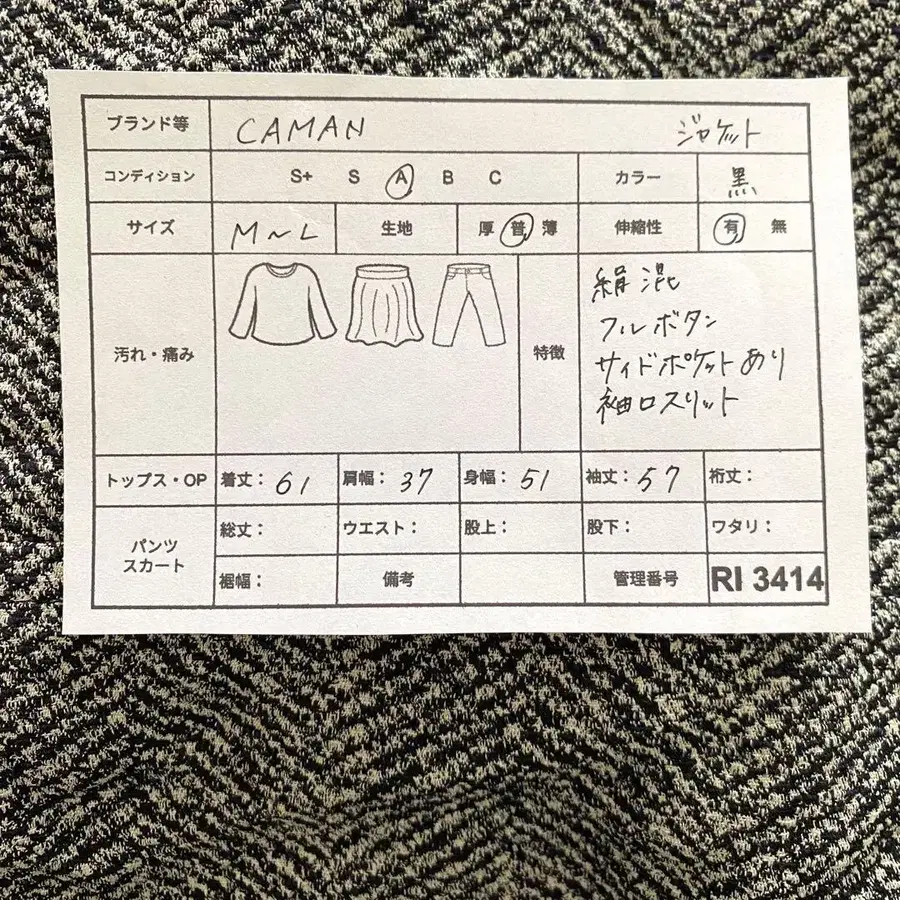 ブランド等 CAMAN ジャケット
コンディション S+ S A B C カラー 黒
サイズ M~L 生地 厚 普 薄 伸縮性 有 無
汚れ・痛み 特徴
絹混
フルボタン
サイドポケットあり
袖口スリット
トップス・OP 着丈: 61 肩幅: 37 身幅: 51 袖丈: 57 裄丈:
パンツ
スカート
総丈: ウエスト: 股上: 股下: ワタリ:
裾幅: 備考 管理番号 RI 3414